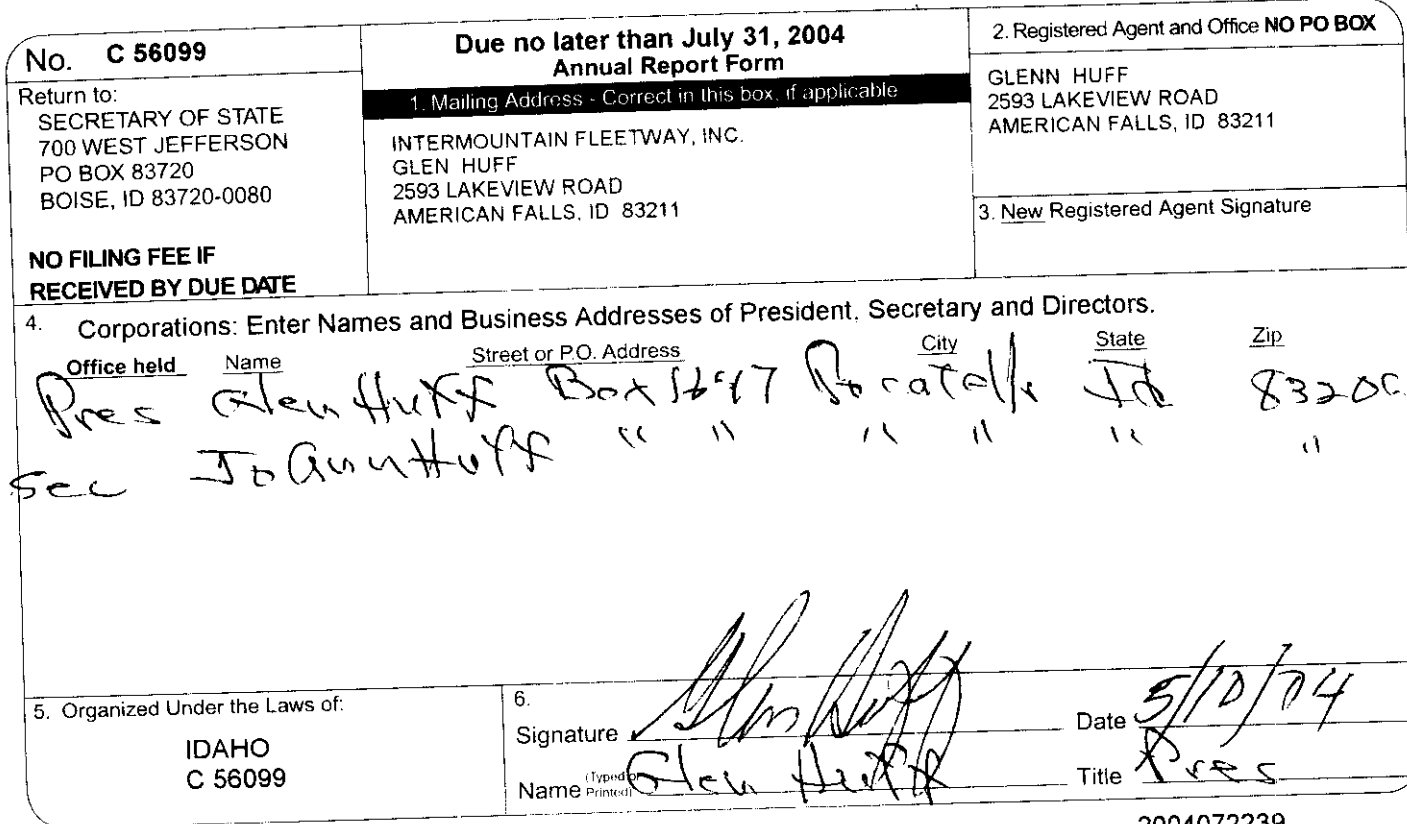 No. C 56099
Return to:
SECRETARY OF STATE
700 WEST JEFFERSON
PO BOX 83720
BOISE, ID 83720-0080
NO FILING FEE IF
RECEIVED BY DUE DATE
Due no later than July 31, 2004
Annual Report Form
1. Mailing Address - Correct in this box, if applicable
INTERMOUNTAIN FLEETWAY, INC.
GLEN HUFF
2593 LAKEVIEW ROAD
AMERICAN FALLS, ID 83211
2. Registered Agent and Office NO PO BOX
GLENN HUFF
2593 LAKEVIEW ROAD
AMERICAN FALLS, ID 83211
3. New Registered Agent Signature
4. Corporations: Enter Names and Business Addresses of President, Secretary and Directors.
Office held Name Street or P.O. Address City State Zip
Pres Glen Huff Box Pocatello Id
Sec JoAnn Huff " " " " " "
5. Organized Under the Laws of:
IDAHO
C 56099
6.
Signature Glen Huff Date 5/10/04
Name (Typed or Printed) Glen Huff Title Pres
2004072239